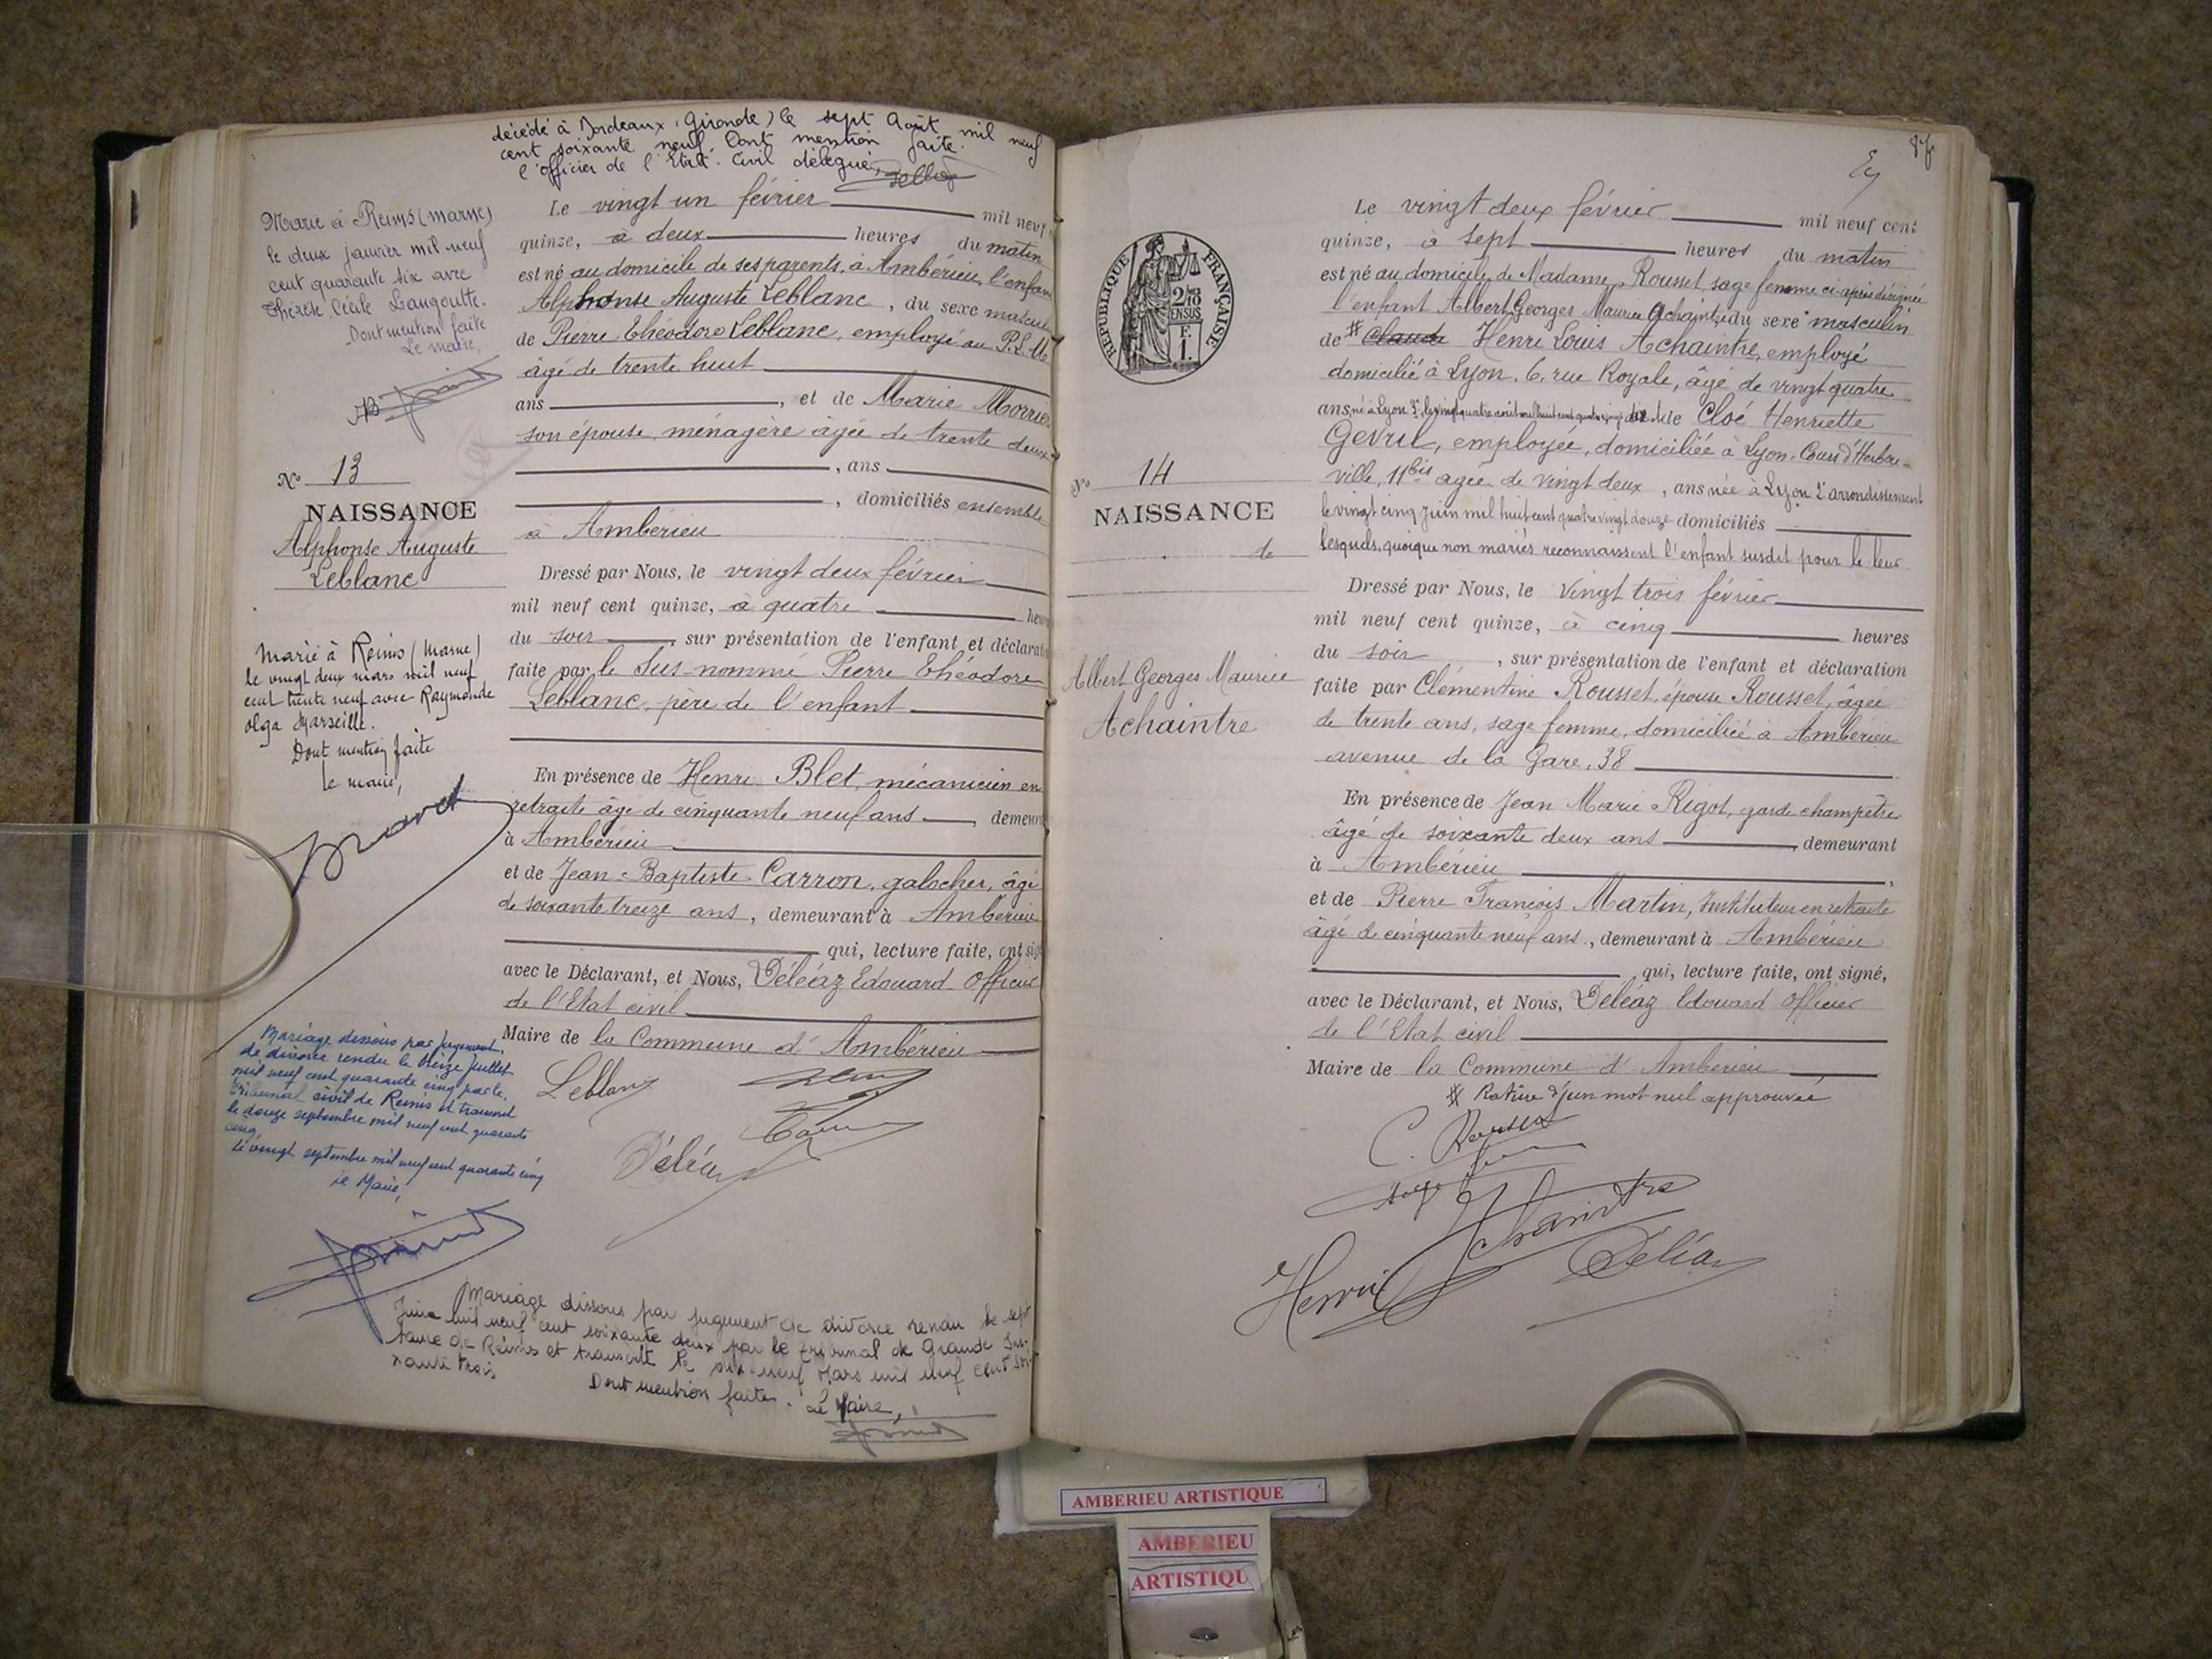 décédé à Bordeaux (Gironde) le sept Août mil neuf
cent soixante neuf. Dont mention faite.
l'officier de l'Etat Civil délégué,
Marié à Reims (Marne)
le deux janvier mil neuf
cent quarante six avec
Thérèse Cécile Langoutte.
Dont mention faite
Le maire,
N° 13
NAISSANCE
Alphonse Auguste
Leblanc
Marié à Reims (Marne)
le vingt deux mars mil neuf
cent trente neuf avec Raymonde
Olga Marseille.
Dont mention faite
le maire,
Mariage dissous par jugement
de divorce rendu le treize juillet
mil neuf cent quarante cinq par le
tribunal civil de Reims et transcrit
le douze septembre mil neuf cent quarante
cinq
le vingt septembre mil neuf cent quarante cinq
le Maire,
Le vingt un février mil neuf
quinze, à deux heures du matin
est né au domicile de ses parents, à Ambérieu, l'enfant
Alphonse Auguste Leblanc, du sexe masculin
de Pierre Théodore Leblanc, employé au P.L.M
âgé de trente huit
ans, et de Marie
son épouse, ménagère âgée de trente deux
, ans
, domiciliés ensemble
à Ambérieu
Dressé par Nous, le vingt deux février
mil neuf cent quinze, à quatre heu
du soir, sur présentation de l'enfant et déclarat
faite par le sus-nommé Pierre Théodore
Leblanc, père de l'enfant
En présence de Henri Blet, mécanicien en
retraite âgé de cinquante neuf ans, demeur
à Ambérieu
et de Jean-Baptiste Carron, galocher, âgé
de soixante treize ans, demeurant à Ambérieu
qui, lecture faite, ont sig
avec le Déclarant, et Nous, Déléaz Edouard Officier
de l'Etat civil
Maire de la Commune d'Ambérieu
Leblanc
Déléaz
Mariage dissous par jugement de divorce rendu le sept
Juin mil neuf cent soixante deux par le tribunal de Grande Ins-
tance de Reims et transcrit le dix-neuf Mars mil neuf cent soi-
xante trois
Dont mention faite. Le Maire,
87
RÉPUBLIQUE FRANÇAISE
2/10
EN SUS
F.
1.
N° 14
NAISSANCE
de
Albert Georges Maurice
Achaintre
Le vingt deux février mil neuf cent
quinze, à sept heures du matin
est né au domicile de Madame Rousset, sage femme ci-après désignée
l'enfant Albert Georges Maurice Achaintre, du sexe masculin
de # Claude Henri Louis Achaintre, employé
domicilié à Lyon, 6, rue Royale, âgé de vingt quatre
ans, né à Lyon, le vingt quatre août mil huit cent quatre vingt dix et de Cloé Henriette
Gevril, employée, domiciliée à Lyon, Cours d'Herbou-
ville, 11bis âgée de vingt deux, ans née à Lyon 2e arrondissement
le vingt cinq juin mil huit cent quatre vingt douze domiciliés
lesquels, quoique non mariés reconnaissent l'enfant susdit pour le leur
Dressé par Nous, le vingt trois février
mil neuf cent quinze, à cinq heures
du soir, sur présentation de l'enfant et déclaration
faite par Clémentine Rousset, épouse Rousset, âgée
de trente ans, sage femme, domiciliée à Ambérieu
avenue de la Gare, 38
En présence de Jean Marie Rigot, garde champêtre
âgé de soixante deux ans, demeurant
à Ambérieu,
et de Pierre François Martin, Instituteur en retraite
âgé de cinquante neuf ans, demeurant à Ambérieu
qui, lecture faite, ont signé,
avec le Déclarant, et Nous, Déléaz Edouard Officier
de l'Etat civil
Maire de la Commune d'Ambérieu
# Rature d'un mot nul approuvée
C. Rousset
sage femme
Achaintre
Henri
Déléaz
AMBERIEU ARTISTIQUE
AMBERIEU
ARTISTIQU